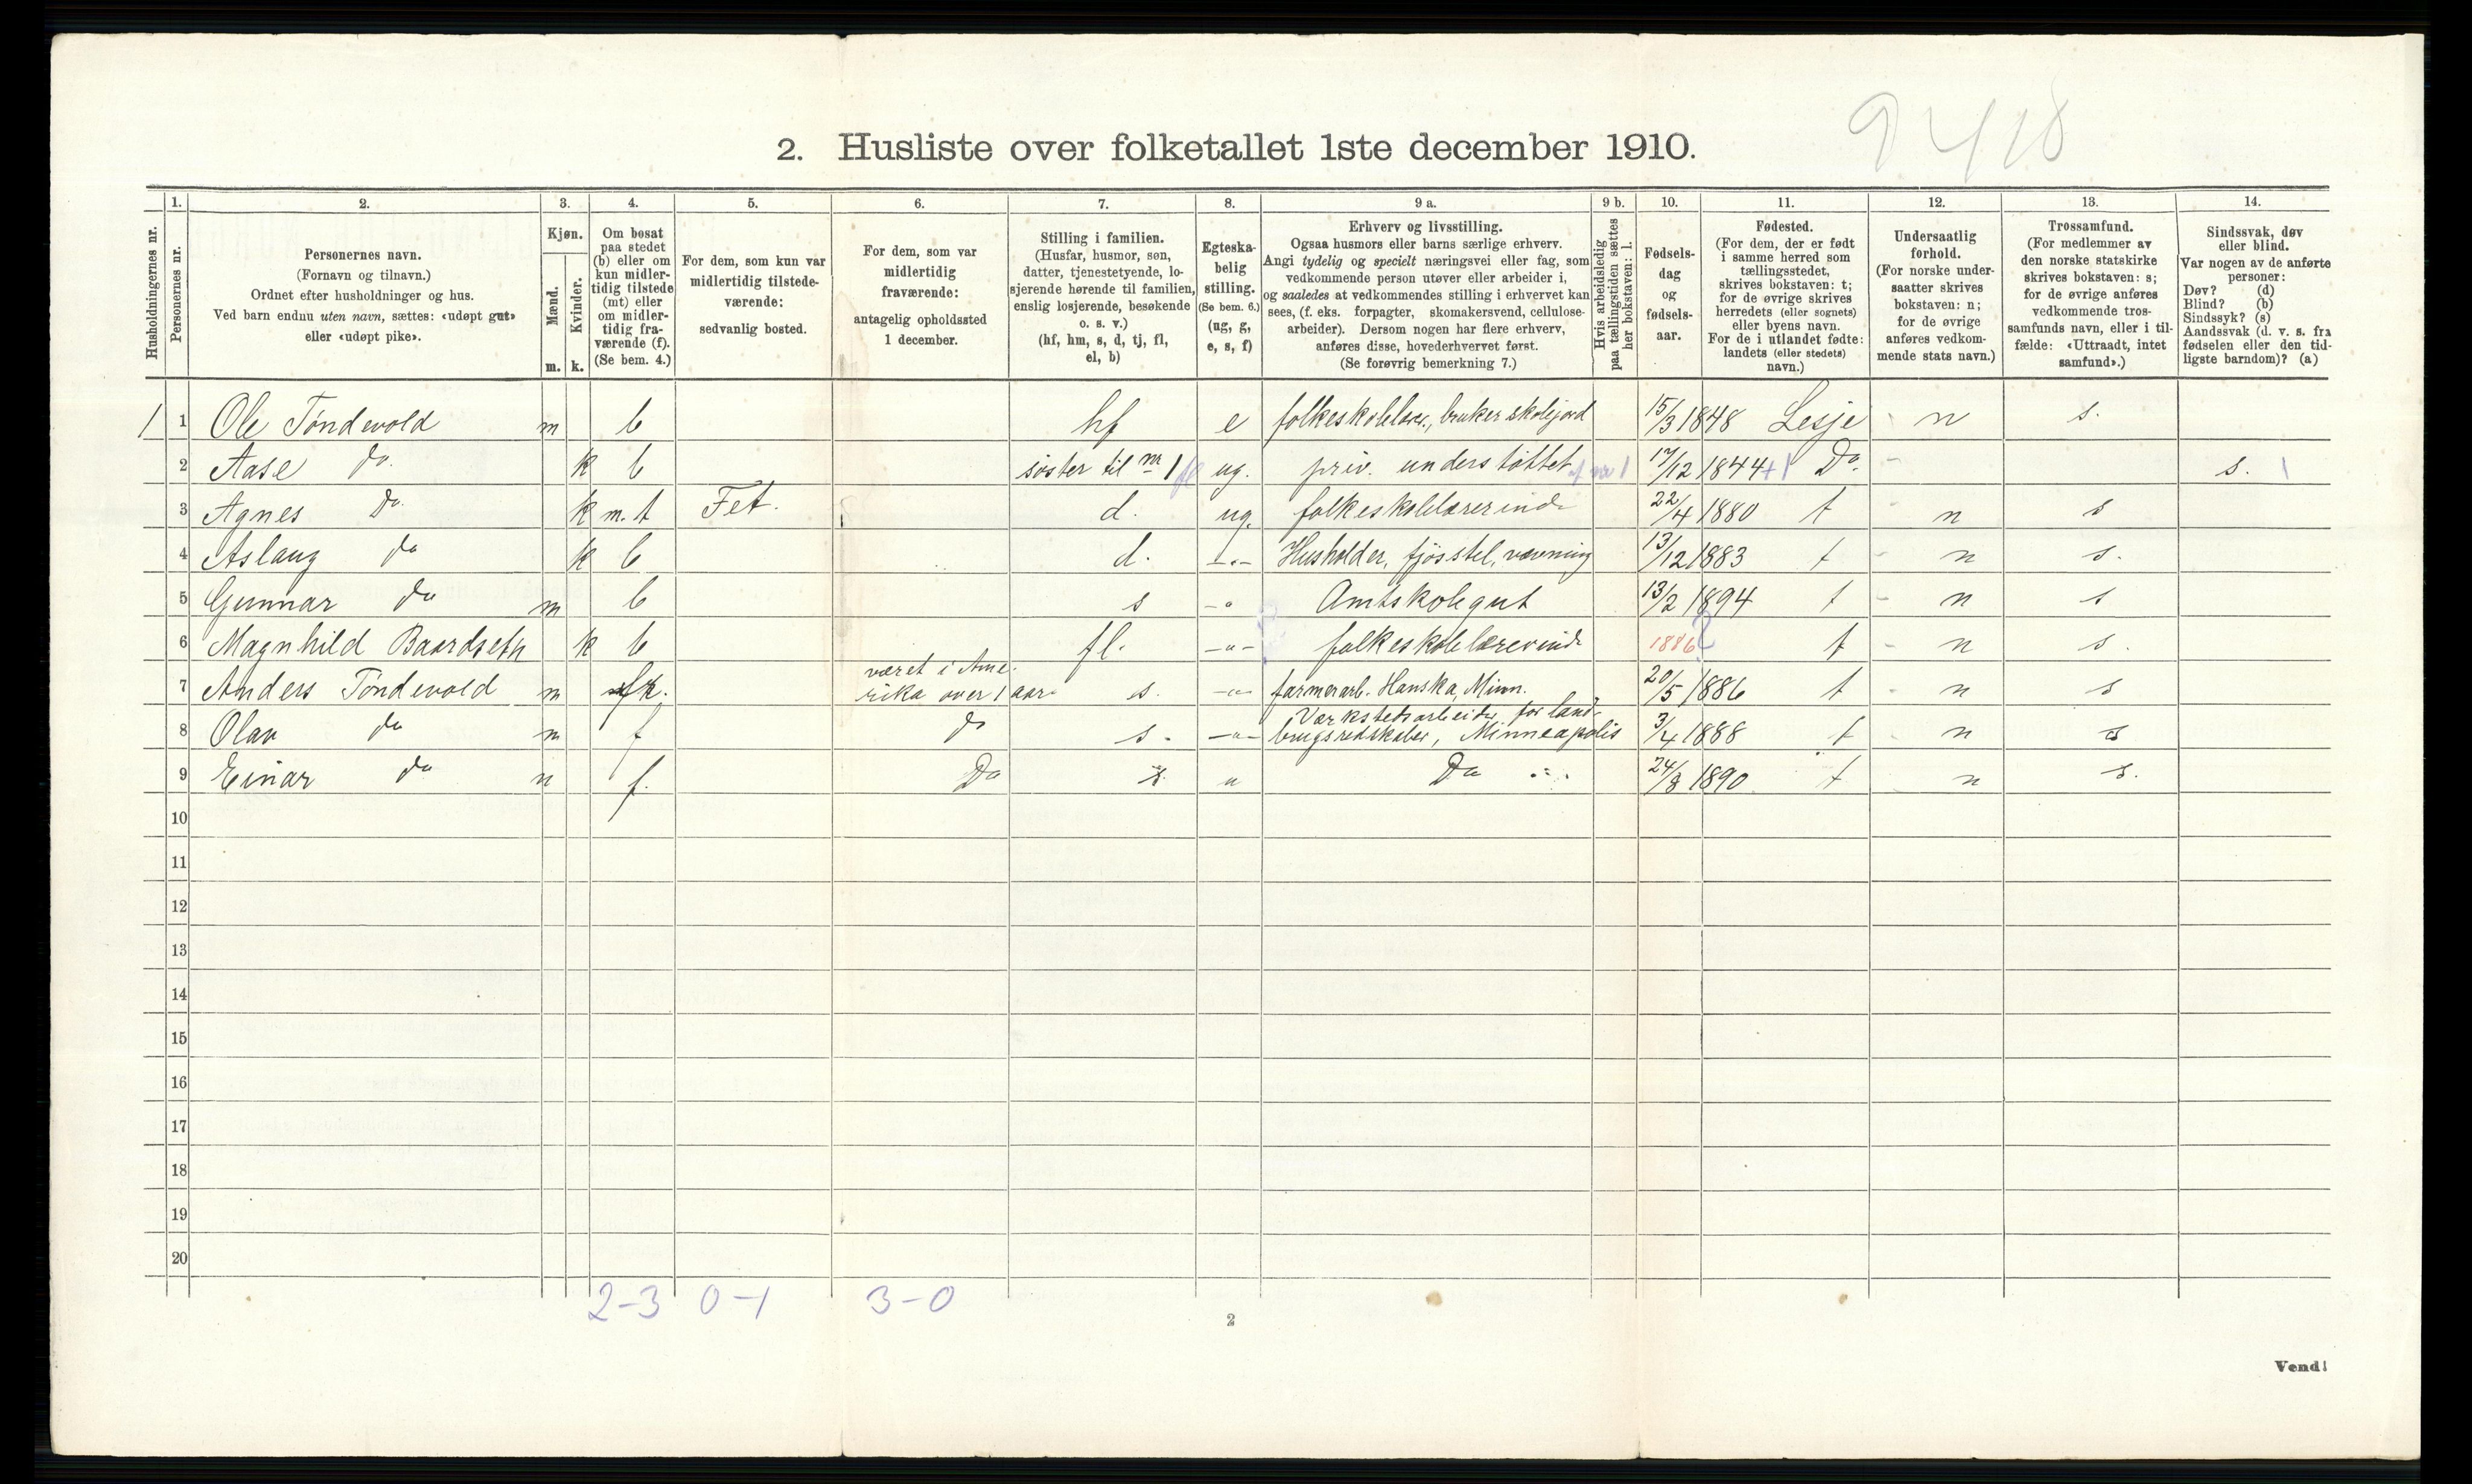 9418
2. Husliste over folketallet 1ste december 1910.
Husholdningernes nr.
1.
Personernes nr.
2.
Personernes navn.
(Fornavn og tilnavn.)
Ordnet efter husholdninger og hus.
Ved barn endnu uten navn, sættes: «udøpt gut»
eller «udøpt pike».
3.
Kjøn.
Mænd.
Kvinder.
m. k.
4.
Om bosat
paa stedet
(b) eller om
kun midler-
tidig tilstede
(mt) eller
om midler-
tidig fra-
værende (f).
(Se bem. 4.)
5.
For dem, som kun var
midlertidig tilstede-
værende:
sedvanlig bosted.
6.
For dem, som var
midlertidig
fraværende:
antagelig opholdssted
1 december.
7.
Stilling i familien.
(Husfar, husmor, søn,
datter, tjenestetyende, lo-
sjerende hørende til familien,
enslig losjerende, besøkende
o. s. v.)
(hf, hm, s, d, tj, fl,
el, b)
8.
Egteska-
belig
stilling.
(Se bem. 6.)
(ug, g,
e, s, f)
9 a.
Erhverv og livsstilling.
Ogsaa husmors eller barns særlige erhverv.
Angi tydelig og specielt næringsvei eller fag, som
vedkommende person utøver eller arbeider i,
og saaledes at vedkommendes stilling i erhvervet kan
sees, (f. eks. forpagter, skomakersvend, cellulose-
arbeider). Dersom nogen har flere erhverv,
anføres disse, hovederhvervet først.
(Se forøvrig bemerkning 7.)
9 b.
Hvis arbeidsledig
paa tællingstiden sættes
her bokstaven: l.
10.
Fødsels-
dag
og
fødsels-
aar.
11.
Fødested.
(For dem, der er født
i samme herred som
tællingsstedet,
skrives bokstaven: t;
for de øvrige skrives
herredets (eller sognets)
eller byens navn.
For de i utlandet fødte:
landets (eller stedets)
navn.)
12.
Undersaatlig
forhold.
(For norske under-
saatter skrives
bokstaven: n;
for de øvrige
anføres vedkom-
mende stats navn.)
13.
Trossamfund.
(For medlemmer av
den norske statskirke
skrives bokstaven: s;
for de øvrige anføres
vedkommende tros-
samfunds navn, eller i til-
fælde: «Uttraadt, intet
samfund».)
14.
Sindssvak, døv
eller blind.
Var nogen av de anførte
personer:
Døv? (d)
Blind? (b)
Sindssyk? (s)
Aandssvak (d. v. s. fra
fødselen eller den tid-
ligste barndom)? (a)
1 1 Ole Töndevold m b hf e folkeskolelærer, bruker skolejord 15/3 1848 Lesje n s.
2 Aase do. k b söster til nr 1 fl ug. priv. understöttet af nr 1 17/12 1844 +1 Do. s. 1
3 Agnes do. k m.t Fet. d. ug. folkeskolelærerinde 22/4 1880 t n s
4 Aslaug do k b d. -"- Husholder, fjösstel, vævning 13/12 1883 t n s.
5 Gunnar do m b s -" Amtskolegut 13/2 1894 t n s
6 Magnhild Baardseth k b fl. -"- folkeskolelærerinde 1886 ? t n s.
været i Ame-
7 Anders Töndevold m fk. rika over 1 aar s. -"- farmerarb. Hanska, Minn. 20/5 1886 t n s
Værkstedsarbeider for land-
8 Olav do m f do s. -"- brugsredskaber, Minneapolis 3/4 1888 t n s
9 Einar do m f. Do s. " Do 24/8 1890 t n s.
10
11
12
13
14
15
16
17
18
19
20
2-3 0-1 3-0
2
Vend!